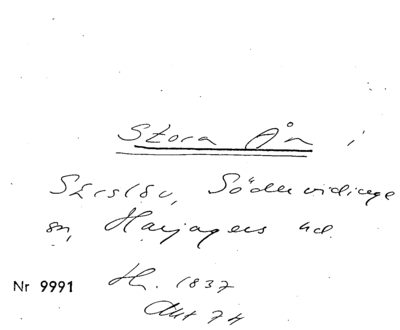 Stora Ån i
Södervidinge
sn, Harjagers hd.
Nr 9991 Hr. 1837
Akt 74